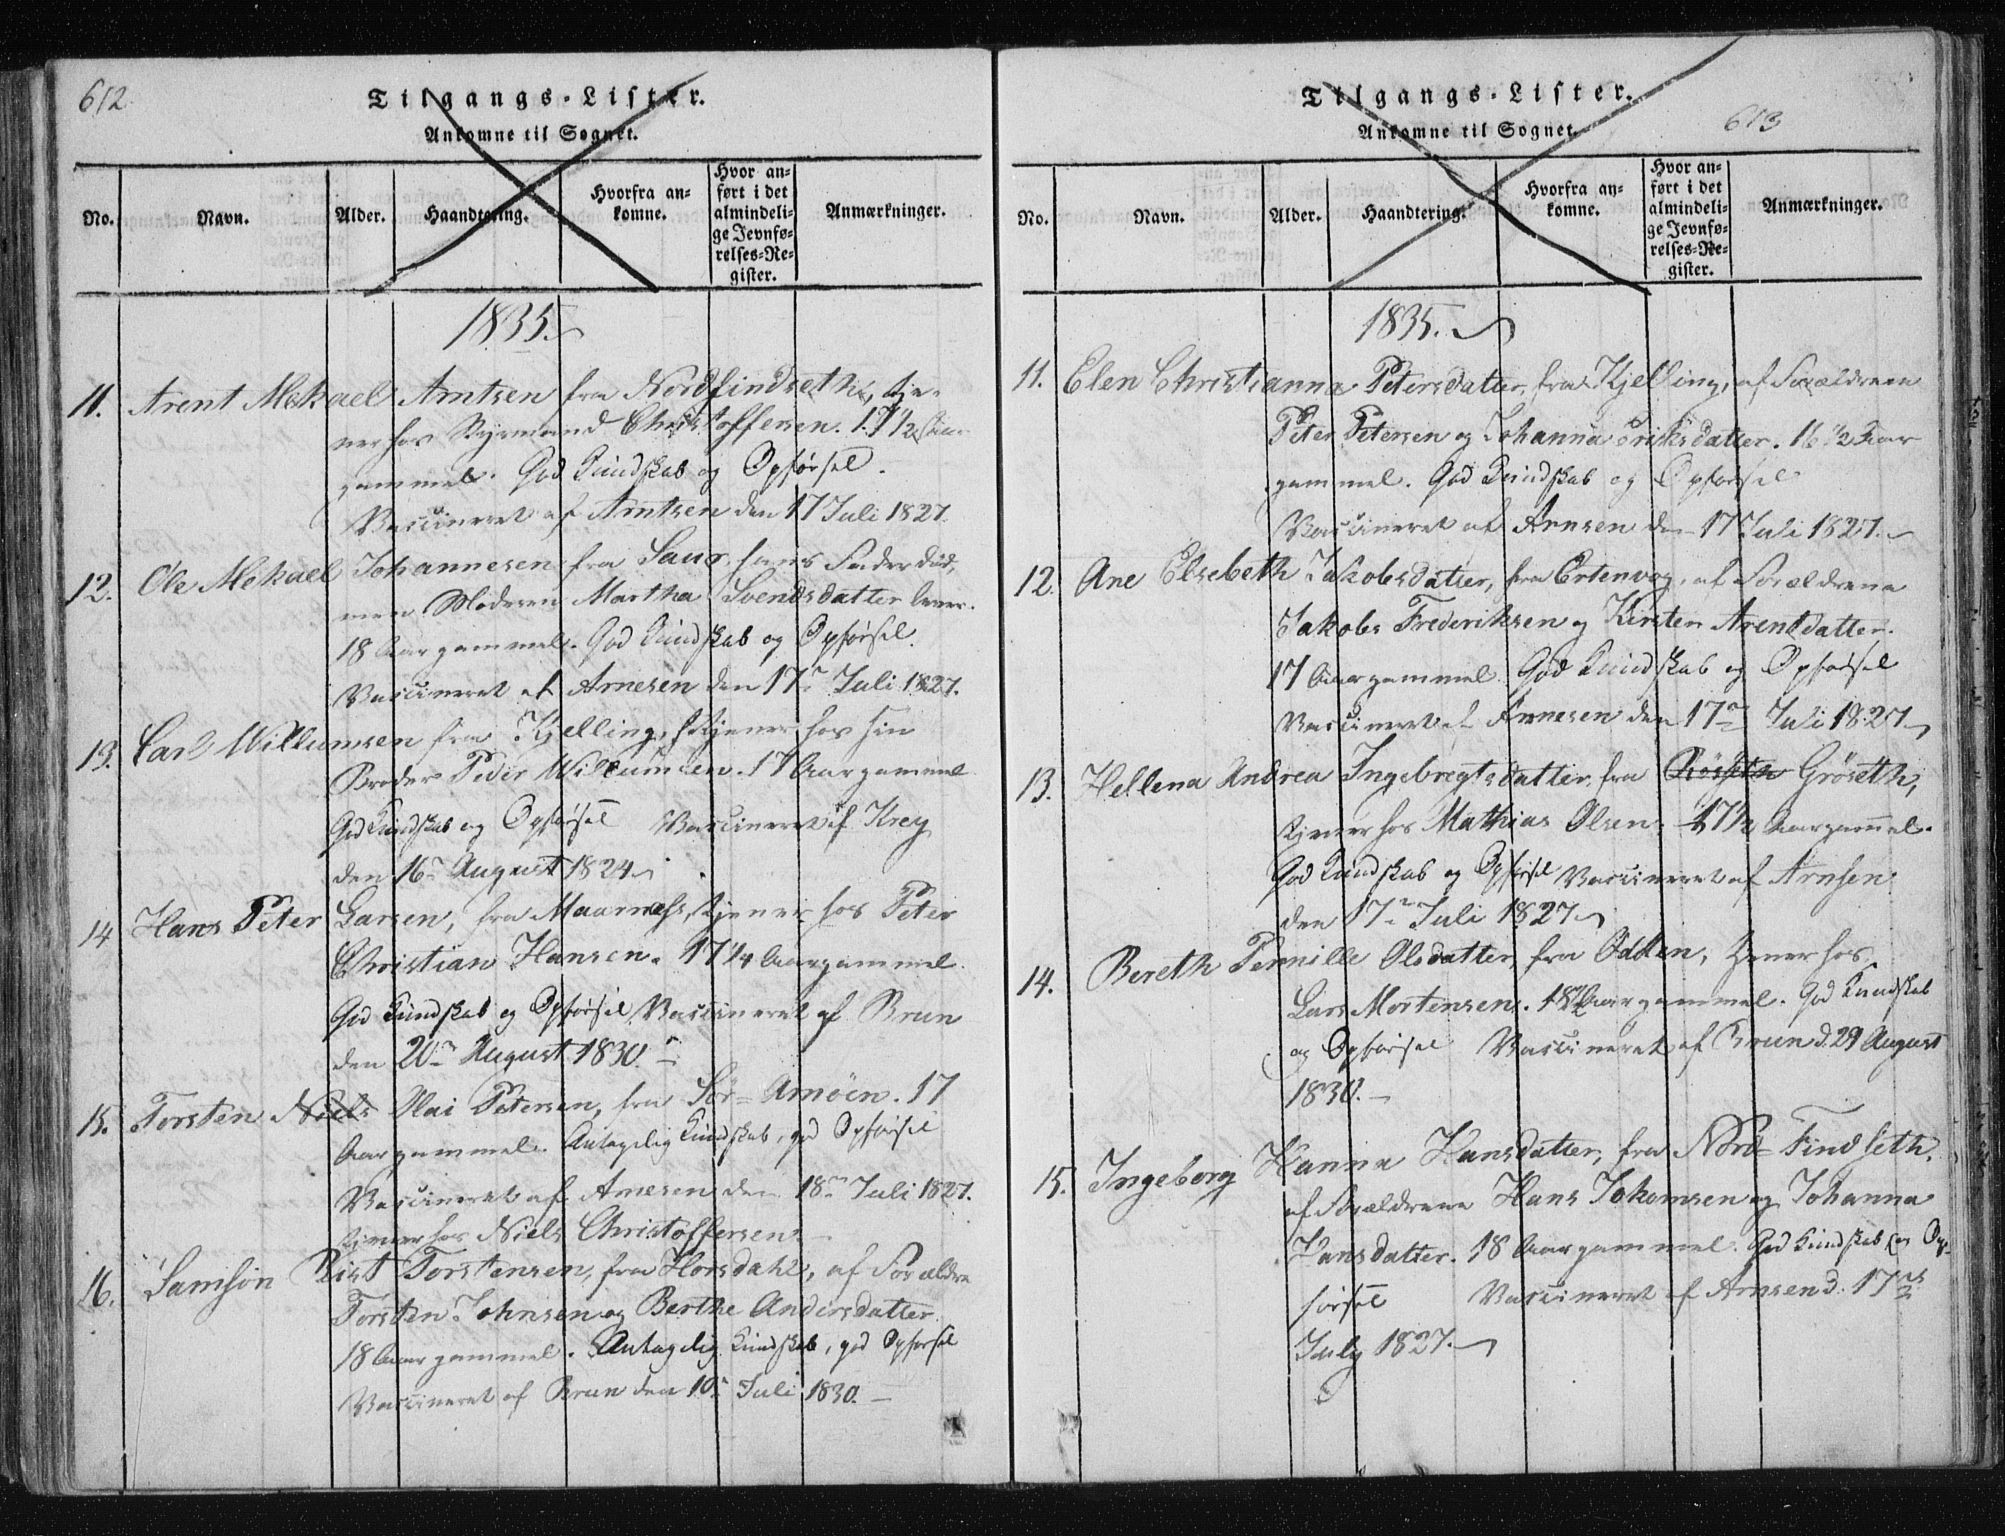 612
Tilgangs-Lister.
Ankomne til Sognet.
No.
Navn.
Alder.
Haandtering.
Hvorfra an-
komne.
Hvor an-
ført i det
almindeli-
ge Jevnfø-
relses-Re-
gister.
Anmærkninger.
1835.
11. Arent Mekael Arntsen fra Nordfindseth, tje-
ner hos Styrmand Christoffersen. 17 1/2 Aar
gammel. God Kundskab og Opførsel.
Vaccineret af Arntsen den 17 Juli 1827.
12. Ole Mekael Johannesen fra Saur, hans Fader död,
men Moderen Martha Svendsdatter lever.
18 Aar gammel. God Kundskab og Opførsel.
Vaccineret af Arnesen den 17de Juli 1827.
13. Carl Willumsen fra Kjelling, tjener hos sin
Broder Peder Willumsen. 17 Aar gammel
God Kundskab og Opførsel Vaccineret af Krey
den 16de August 1824
14 Hans Peter Larsen, fra Maarnæss, tjener hos Peter
Christian Hansen. 17 1/4 Aar gammel.
God Kundskab og Opførsel, Vaccineret af Brun
den 20de August 1830.
15. Torsten Niels Olai Petersen, fra Sör-Arnöen. 17
Aar gammel. Antagelig Kundskab, god Opførsel
Vaccineret af Arnesen den 18de Juli 1827.
tjener hos Niels Christoffersen.
16. Samsön Qvist Torstensen, fra Horsdahl, af Forældre
Torsten Johnsen og Berthe Andersdatter
18 Aar gammel. Antagelig Kundskab, god Opførsel
Vaccineret af Brun den 10de Juli 1830.
Tilgangs-Lister.
613
Ankomne til Sognet.
No.
Navn.
Alder.
Haandtering.
Hvorfra an-
komne.
Hvor an-
ført i det
almindeli-
ge Jevnfø-
relses-Re-
gister.
Anmærkninger.
1835.
11. Elen Christianna Petersdatter, fra Kjelling, af Forældrene
Peter Petersen og Johanna Eriksdatter. 16 1/2 Aar
gammel. God Kundskab og Opførsel
Vaccineret af Arnsen den 17 Juli 1827.
12. Ane Elsebeth Jakobsdatter, fra Ertenvog, af Forældrene
Jakobs Frederiksen og Kirsten Arentdatter.
17 Aar gammel. God Kundskab og Opførsel
Vaccineret af Arnesen den 17de Juli 1827
13. Hellena Andrea Ingebregtsdatter, fra Röseth Gröseth,
tjener hos Mathias Olsen. 17 1/2 Aar gammel.
God Kundskab og Opførsel Vaccineret af Arnsen
den 17de Juli 1827
14. Bereth Pernille Olsdatter, fra Odden, tjener hos
Lars Mortensen. Aar gammel. God Kundskab
og Opførsel Vaccineret af Brun d. 29 August
1830.
15. Ingeborg Hanna Hansdatter, fra Nord-Findseth.
af Forældrene Hans Jokomsen og Johanna
Hansdatter. 18 Aar gammel. God Kundskab og Op-
førsel Vaccineret af Arnsen d. 17de
July 1827.